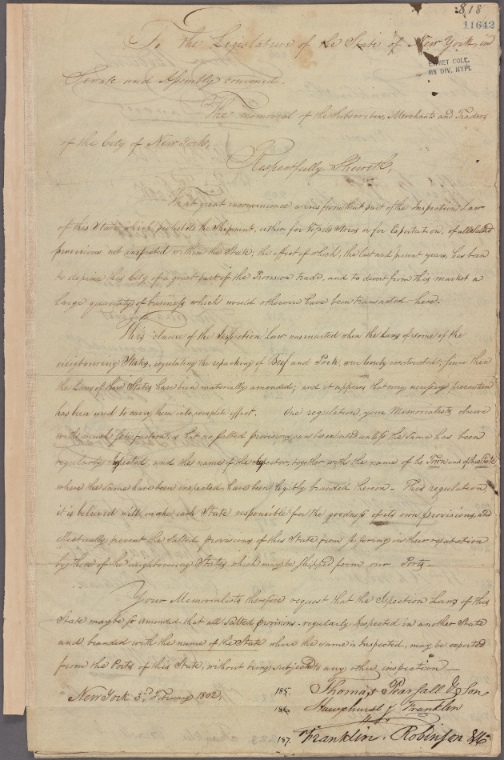 818
11642
EMMET COLL.
MS DIV, NYPL
To the Legislature of the State of New York, in
Senate and Assembly convened.
The memorial of the Subscribers, Merchants and Traders
of the City of New York,
Respectfully Sheweth,
That great inconvenience arises from that part of the Inspection Law
of this State, which prohibits the Shipment, either for Ships Stores or for Exportation, of all salted
provisions not inspected within the State; the effect of which, the last and present year has been
to deprive this City of a great part of the Provision trade, and to divert from this market a
large quantity of business which would otherwise have been transacted here.
This clause of the Inspection Law was enacted when the Laws of some of the
neighbouring States, regulating the repacking of Beef and Pork, were loosely constructed; since then
the Laws of those States have been materially amended; and it appears that every necessary precaution
has been used to carry them into complete effect. One regulation, your Memorialists observe
with much satisfaction is that no salted provisions can be exported unless the same has been
regularly Inspected and the name of the Inspector, together with the name of the Town and of the State
where the same have been inspected have been legibly branded thereon. This regulation,
it is believed will make each State responsible for the goodness of its own provisions, and
effectually prevent the Salted provisions of this State from in their reputation
by those of the neighbouring States which may be shipped from our Ports.
Your Memorialists therefore request that the Inspection Laws of this
State may be so amended, that all Salted provisions, regularly Inspected in another State
and branded with the name of the State where the same is Inspected, may be exported
from the Ports of this State, without being subject to any other inspection
New York 3d February 1802.
185. Thomas Pearsall & Son
186. Hawxhurst & Franklin
187. Franklin, Robinson & Co